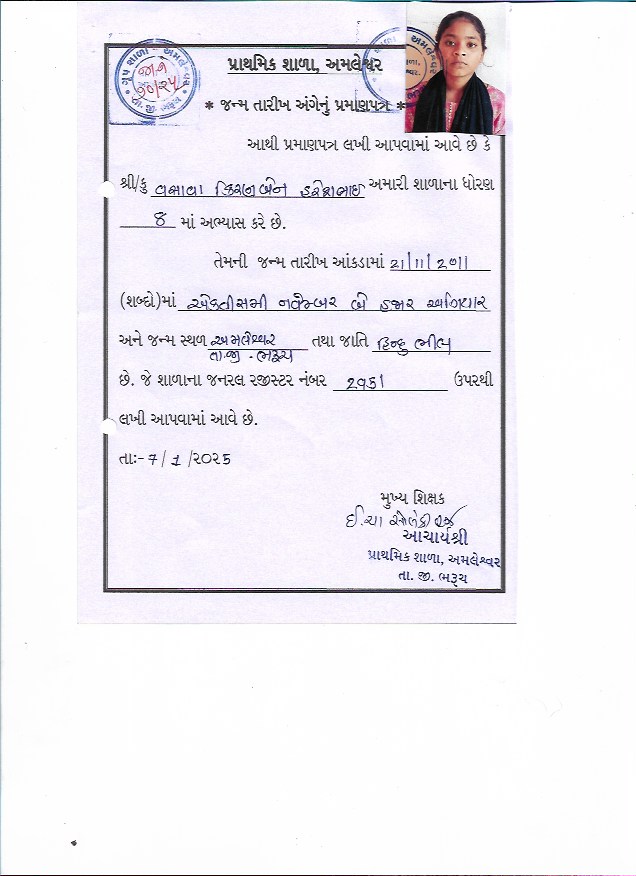 ગૃપ શાળા અમલેશ્વર
તા. જી. ભરૂચ
જા.નં
૨૦/૨૫
પ્રાથમિક શાળા, અમલેશ્વર
* જન્મ તારીખ અંગેનું પ્રમાણપત્ર *
આથી પ્રમાણપત્ર લખી આપવામાં આવે છે કે
શ્રી/કુ વસાવા કિરણબેન હરેશભાઈ અમારી શાળાના ધોરણ
8 માં અભ્યાસ કરે છે.
તેમની જન્મ તારીખ આંકડામાં 21/11/2011
(શબ્દો)માં એકવીસમી નવેમ્બર બે હજાર અગિયાર
અને જન્મ સ્થળ અમલેશ્વર તથા જાતિ હિન્દુ ભીલ
તા.જી. ભરૂચ
છે. જે શાળાના જનરલ રજીસ્ટર નંબર ઉપરથી
લખી આપવામાં આવે છે.
તા:- 7/1/૨૦૨૫
મુખ્ય શિક્ષક
ઈ.ચા
આચાર્યશ્રી
પ્રાથમિક શાળા, અમલેશ્વર
તા. જી. ભરૂચ